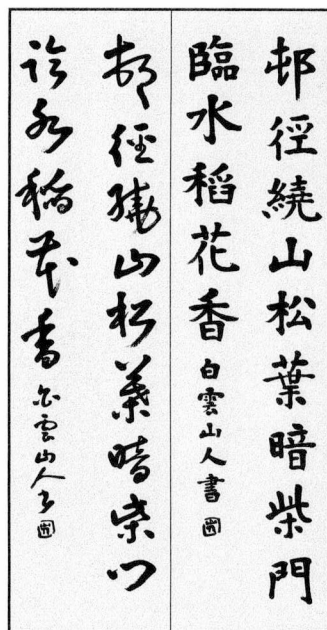 邨徑繞山松葉暗柴門
臨水稻花香 白雲山人書
邨徑繞山松葉暗柴門
臨水稻花香 白雲山人書